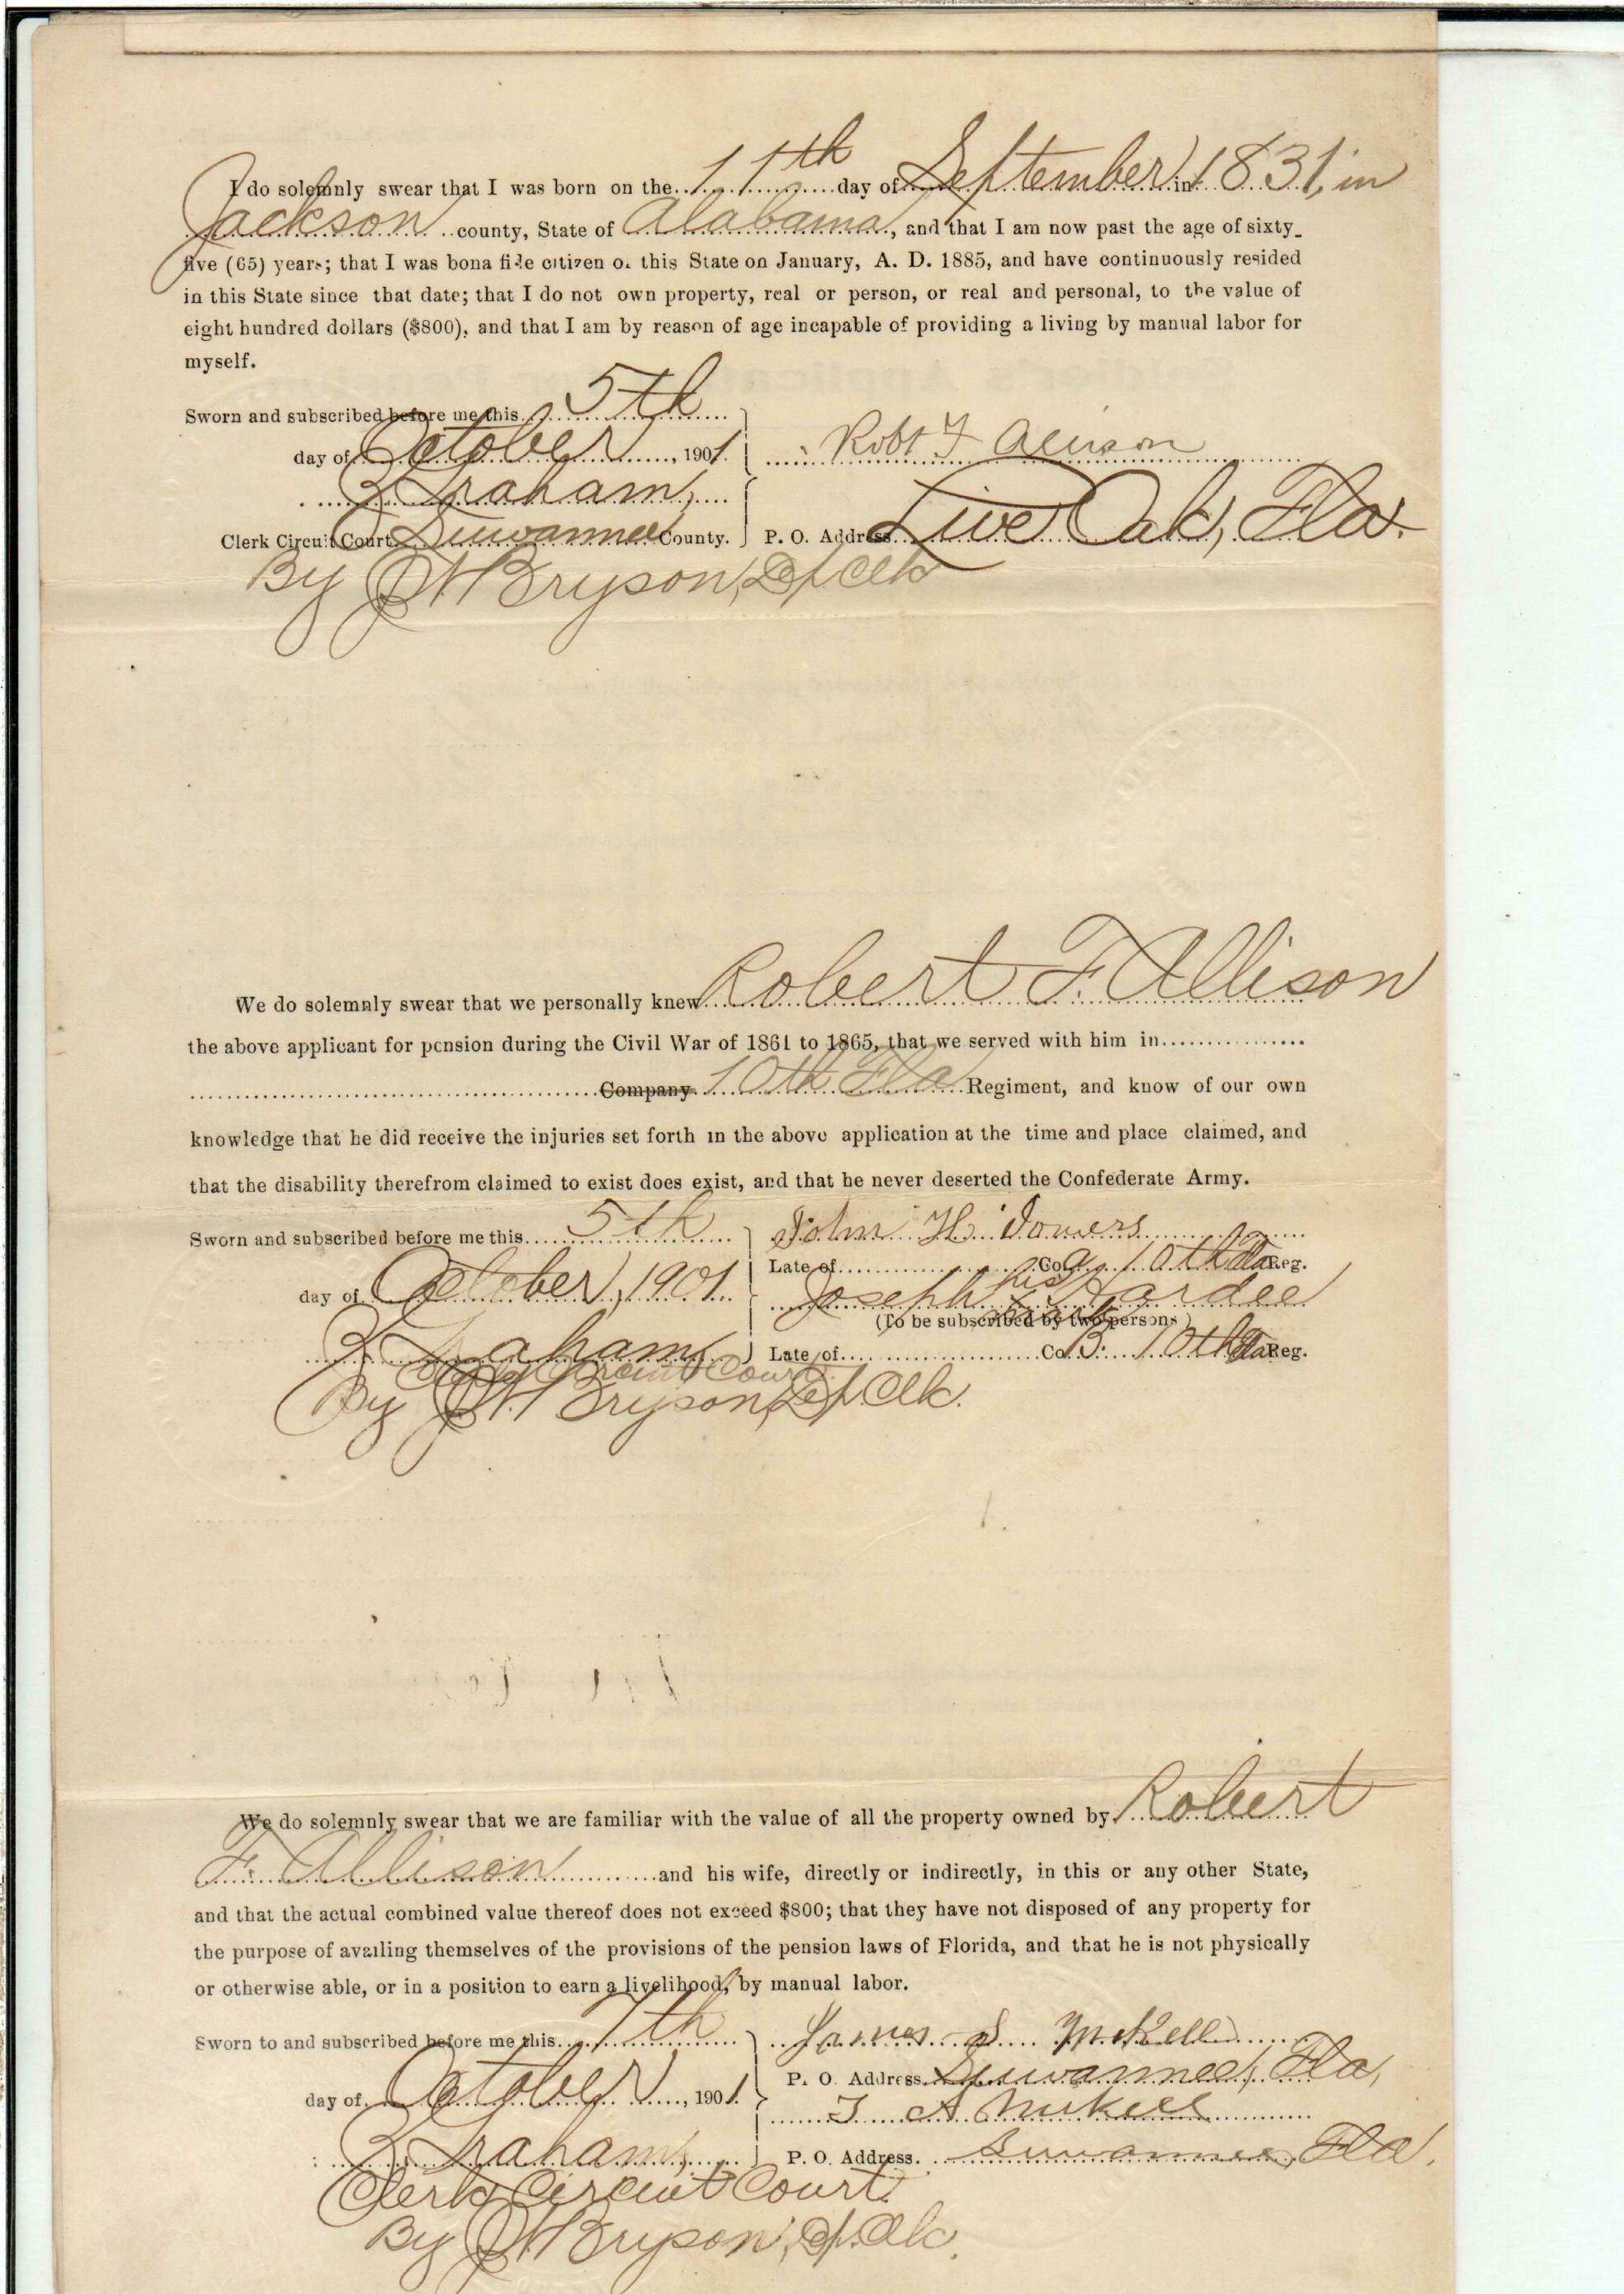 I do solemnly swear that I was born on the 11th day of September in 1831, in
Jackson county, State of Alabama, and that I am now past the age of sixty-
five (65) years; that I was bona fide citizen of this State on January, A. D. 1885, and have continuously resided
in this State since that date; that I do not own property, real or person, or real and personal, to the value of
eight hundred dollars ($800), and that I am by reason of age incapable of providing a living by manual labor for
myself.
Sworn and subscribed before me this 5th
day of October, 1901. Robt F Allison
Graham,
Clerk Circuit Court Suwannee County. P. O. Address Live Oak, Fla.
By Bryson, Dp Clk
We do solemnly swear that we personally knew Robert F. Allison
the above applicant for pension during the Civil War of 1861 to 1865, that we served with him in
Company 10th Fla Regiment, and know of our own
knowledge that he did receive the injuries set forth in the above application at the time and place claimed, and
that the disability therefrom claimed to exist does exist, and that he never deserted the Confederate Army.
Sworn and subscribed before me this 5th John H. Jowers
Late of Co 10th Fla Reg.
day of October, 1901 Joseph his x mark Hardee
(To be subscribed by two persons)
Graham Late of Co B. 10th Fla Reg.
Clerk Circuit Court
By Bryson, Dp Clk.
We do solemnly swear that we are familiar with the value of all the property owned by Robert
F. Allison and his wife, directly or indirectly, in this or any other State,
and that the actual combined value thereof does not exceed $800; that they have not disposed of any property for
the purpose of availing themselves of the provisions of the pension laws of Florida, and that he is not physically
or otherwise able, or in a position to earn a livelihood, by manual labor.
Sworn to and subscribed before me this 7th James S McKell
P. O. Address Suwannee, Fla,
day of October, 1901.
T A
Graham, P. O. Address. Suwannee, Fla.
Clerk Circuit Court.
By Bryson, Dp. Clk.